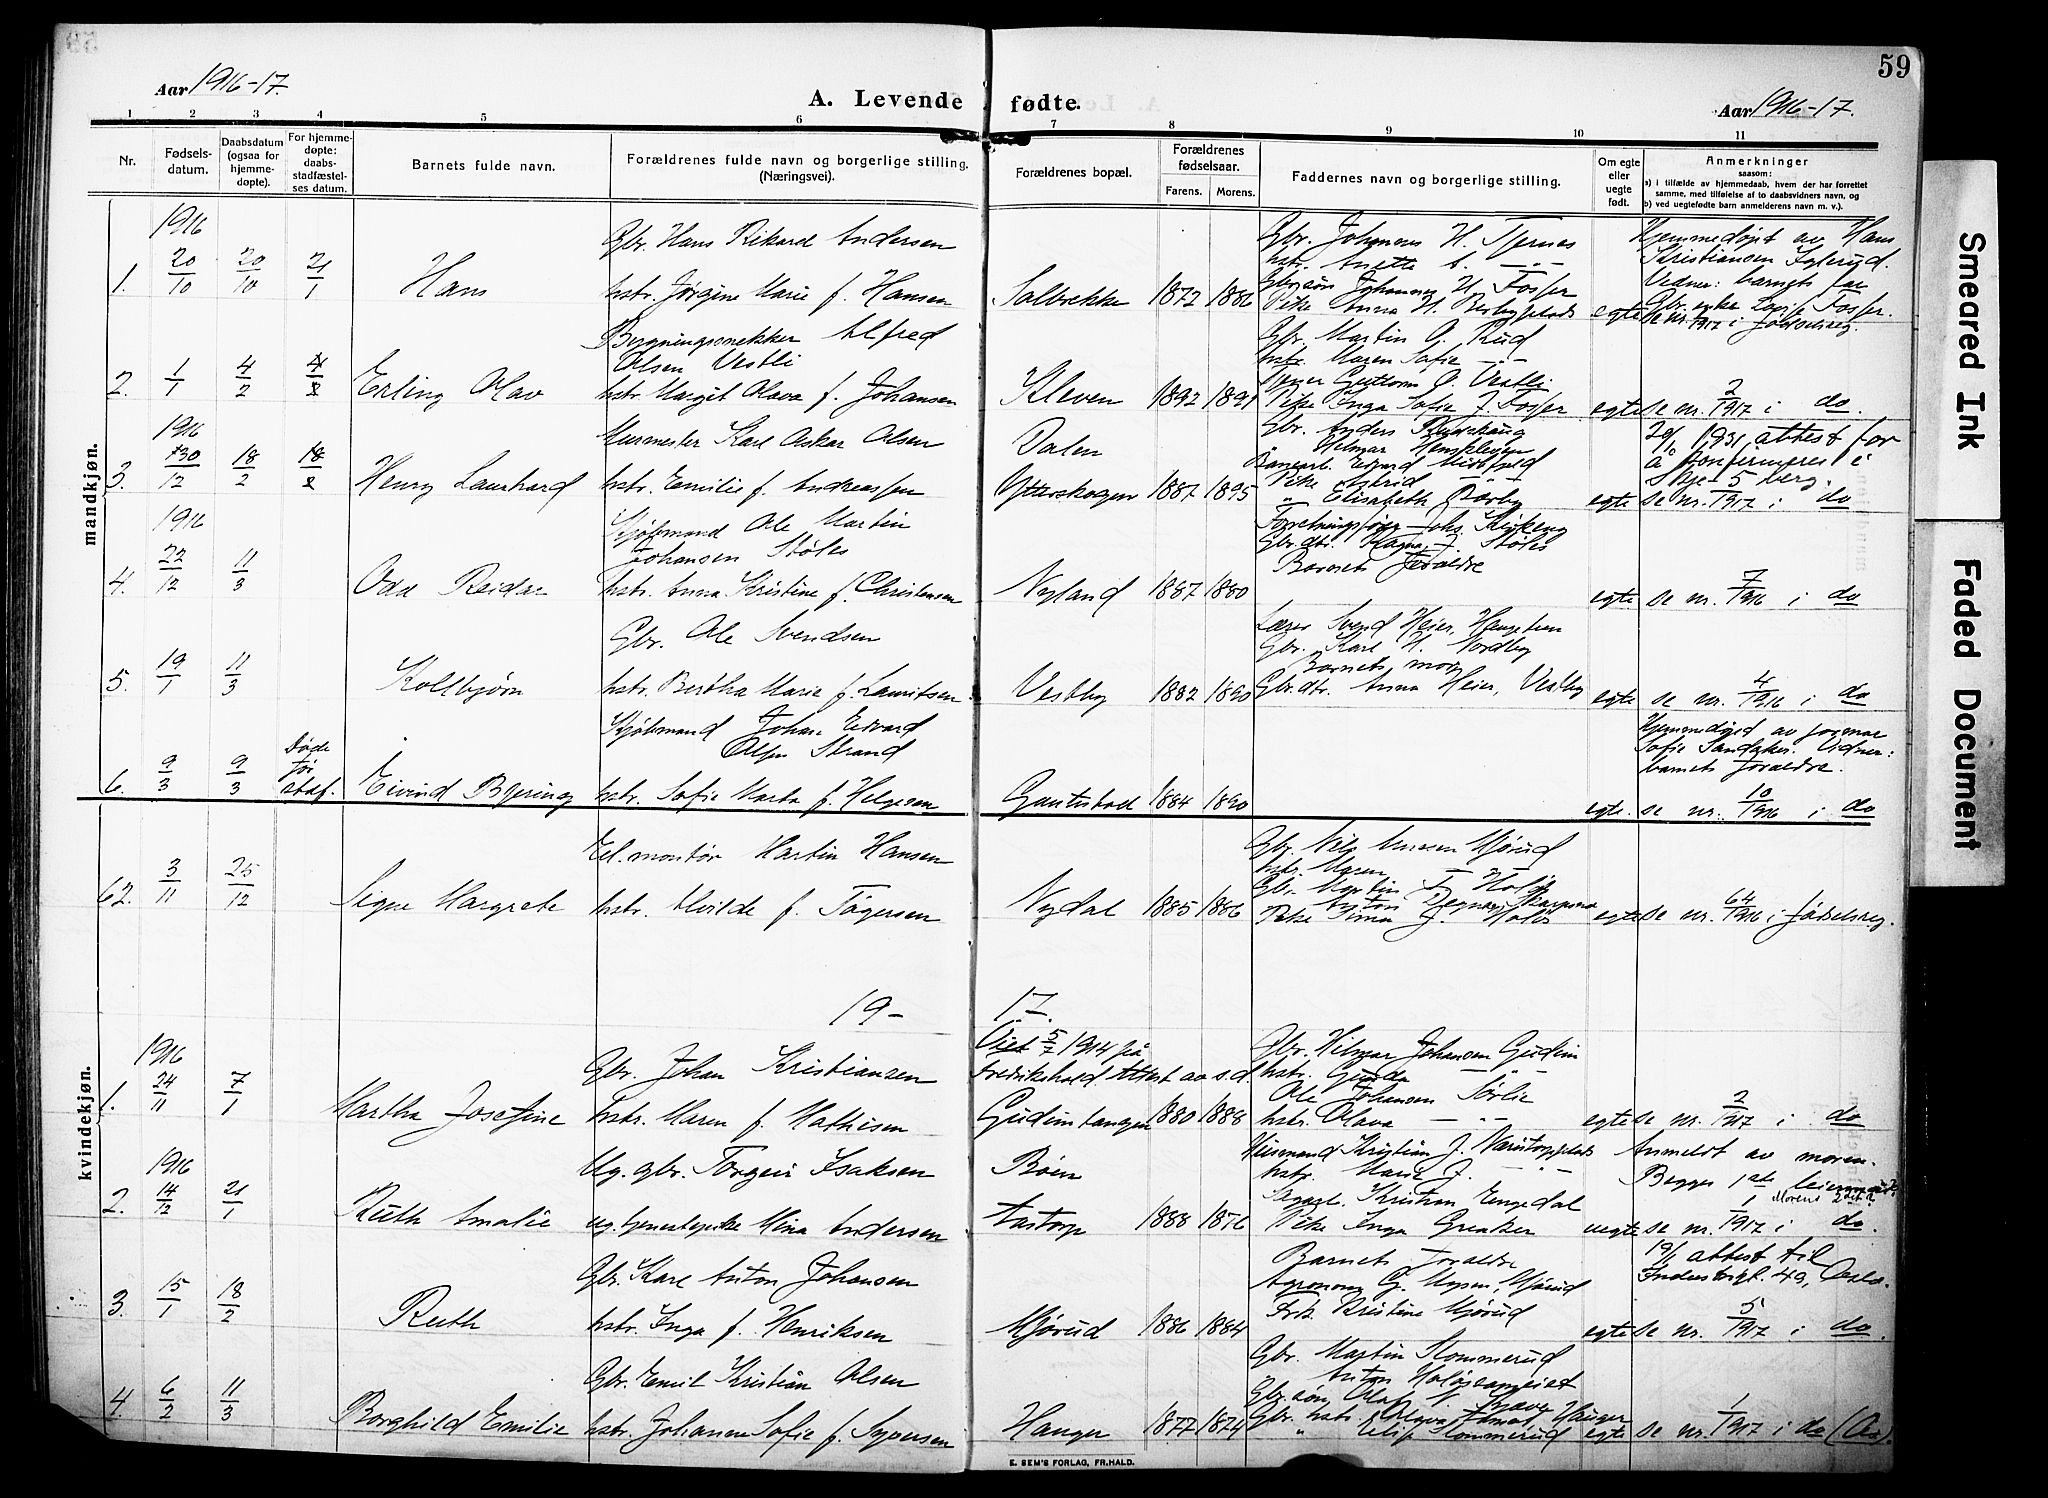 59
Aar 1916-17.
A. Levende fødte.
Aar 1916-17.
1 2 3 4 5 6 7 8 9 10 11
Nr.
Fødsels-
datum.
Daabsdatum
(ogsaa for
hjemme-
døpte).
For hjemme-
døpte:
daabs-
stadfæstel-
ses datum.
Barnets fulde navn.
Forældrenes fulde navn og borgerlige stilling.
(Næringsvei).
Forældrenes bopæl.
Forældrenes
fødselsaar.
Farens. Morens.
Faddernes navn og borgerlige stilling.
Om egte
eller
uegte
født.
Anmerkninger
saasom:
a) i tilfælde av hjemmedaab, hvem der har forrettet
samme, med tilføielse af to daabsvidners navn, og
b) ved uegtefødte barn anmelderens navn m. v.).
mandkjøn.
1916
1. 20/10 20/10 21/1 Hans
Gbr. Hans Rikard Andersen
hstr. Jørgine Marie f. Hansen
Solbrekke 1872 1886
Gbr. Johannes H. Tjernes
hstr. Anette A. — " —
Gbrsøn Johannes H. Fosser
Pike Anna H.
egte
Hjemmedøpt av Hans
Kristiansen
Vidner: barnets far
Gbr. enke Lovise Fosser.
Se nr. /1917 i fødselsreg.
2. 1/1 4/2 4/2 Erling Olav
Bygningssnekker Alfred
Olsen Vestli
hstr. Margit Olava f. Johansen
Kleven 1892 1891
Gbr. Martin O. Rud
hstr. Maren Sofie — " —
Guttorm O. Vestli
Pike Inga Sofie J. Fosser
egte Se nr. 2/1917 i do.
1916
3. 30/12 18/2 18/2 Henry Laurhard
Murmester Karl Oskar Olsen
hstr. Emilie f. Andreassen
Dalen
Ytterskogen 1887 1895
Gbr. Anders
" Helmer
Banearb. Edvard
Pike Astrid — " —
" Elisabeth Barby
egte
20/1 1931 attest for
å konfirmeres i
Skjeberg.
Se nr. 5/1917 i do
1916
4. 22/12 11/3 Odd Reidar
Skjøtsmand Ole Martin
Johansen Støles
hstr. Anna Kristine f. Christensen
Nyland 1887 1880
Forretningsfører Johs.
Gbr.dtr. Magna J. Støles
Barnets foreldre
egte Se nr. 7/1916 i do
5. 19/1 11/3 Kolbjørn
Gbr. Ole Svendsen
hstr. Bertha Marie f. Lauritsen.
Vestby 1882 1890
Lærer Svend Heier, Haugstein
Gbr. Karl H. Nordby
Barnets mor
Gbr.dtr. Anna Heier, Vestby
egte Se nr. 4/1916 i do
6. 9/3 9/3 Døde før stadf. Eivind Bjering
Skjøtsmand Johan Edvard
Olsen Strand
hstr. Sofie Marta f. Helgesen
Gautestad 1884 1890
egte.
Hjemmedøpt av jormor
Sofie Sandaker. Vidner:
barnets foreldre.
Se nr. 10/1916 i do
kvindekjøn.
62. 3/11 25/12 Signe Margrete
El.montør Martin Hansen
hstr. Alvilde f. Tøgersen
Nydal 1885 1886
Gbr. Nils Mjørud
hstr. Maren
Gbr. Martin J. Holøs
Anton
Pike J. Holøs
egte Se nr. 64/1916 i fødselsreg.
19-17.
1916
1. 24/11 7/1 Martha Josefine
Gbr. Johan Kristiansen
hstr. Maren f. Mathisen
Viet 5/7 1914 på
Fredrikshald Attest av s.d.
Gudimtangen 1880 1888
Gbr. Hilmar Johansen Gudim
hstr. Gunda — " —
Ole Johansen Sørlie
hstr. Olava — " —
egte Se nr. 2/1917 i do
1916
2. 14/12 21/1 Ruth Amalie
Ug. gbr. Torgeir Isaksen
ug. tjenestepike Mina Andersen
Böen
Aastorp 1888 1876
Kristian J.
hstr. Marie J. — " —
Kristian Engedal
Pike Inga Greaker
uegte
Anmeldt av moren.
Begges 1ste leiermaal.
Se nr. 1/1917 i do.
3. 15/1 18/2 Ruth
Gbr. Karl Anton Johansen
hstr. Inga f. Henriksen
Mjørud 1886 1884
Barnets foreldre
Agronom G. Mjørud
Frk. Kristine Mjørud
egte
19/1 attest til
Industrigt. 49, Oslo.
Se nr. 5/1917 i do.
4. 6/2 11/3 Borghild Emilie
Gbr. Emil Kristian Olsen
hstr. Johanne Sofie f. Syversen
Hanger 1877 1874
Gbr. Martin Kommerud
Anton
Gbr.søn Olaf
Gbr. hstr. Olava
egte Se nr. 1/1917 i do (Aa).
E. SEM'S FORLAG, FR.HALD.
Smeared Ink
Faded Document